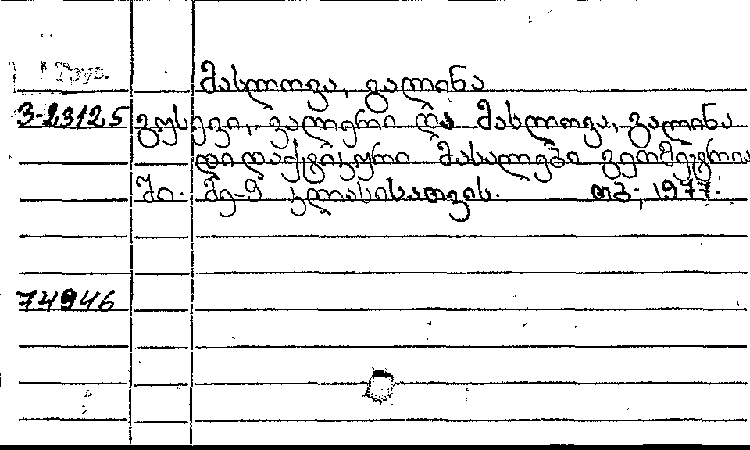 Груз.
მასლოვა, გალინა
3-23125 გუსევი, ვალერი და მასლოვა, გალინა
დიდაქტიკური მასალები გეომეტრია
ში. მე-9 კლასისათვის. თბ., 1977.
74946